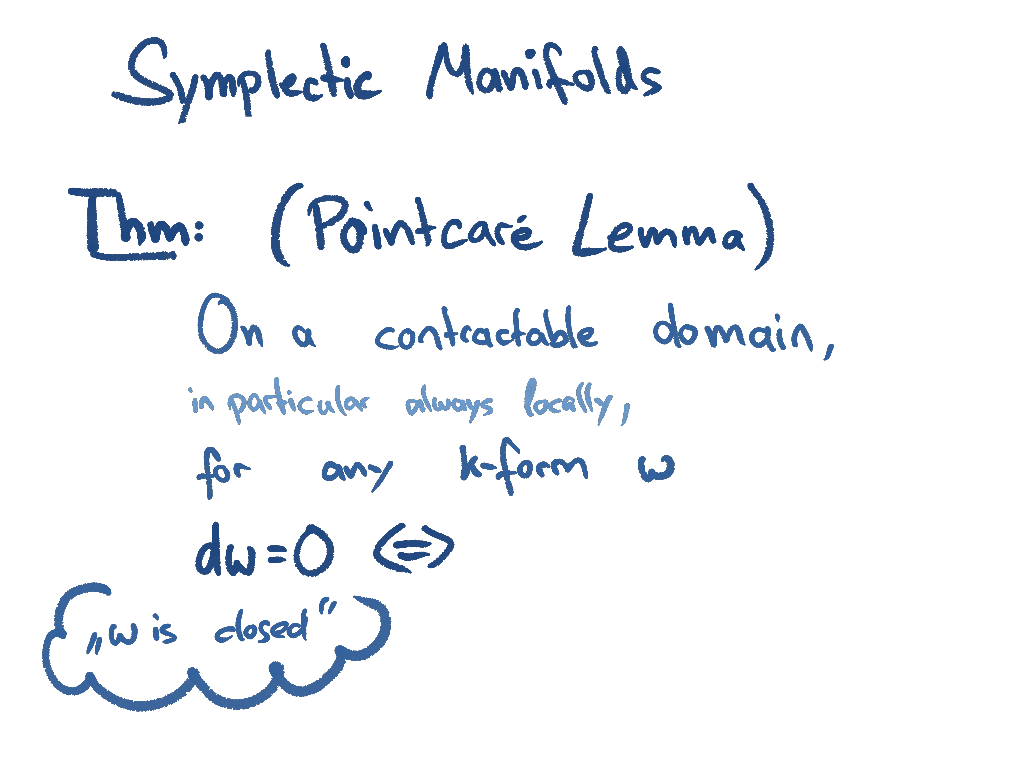 Symplectic Manifolds
Thm: (Pointcaré Lemma)
On a contractable domain,
in particular always locally,
for any k-form ω
dω=0 <=>
„ω is closed"